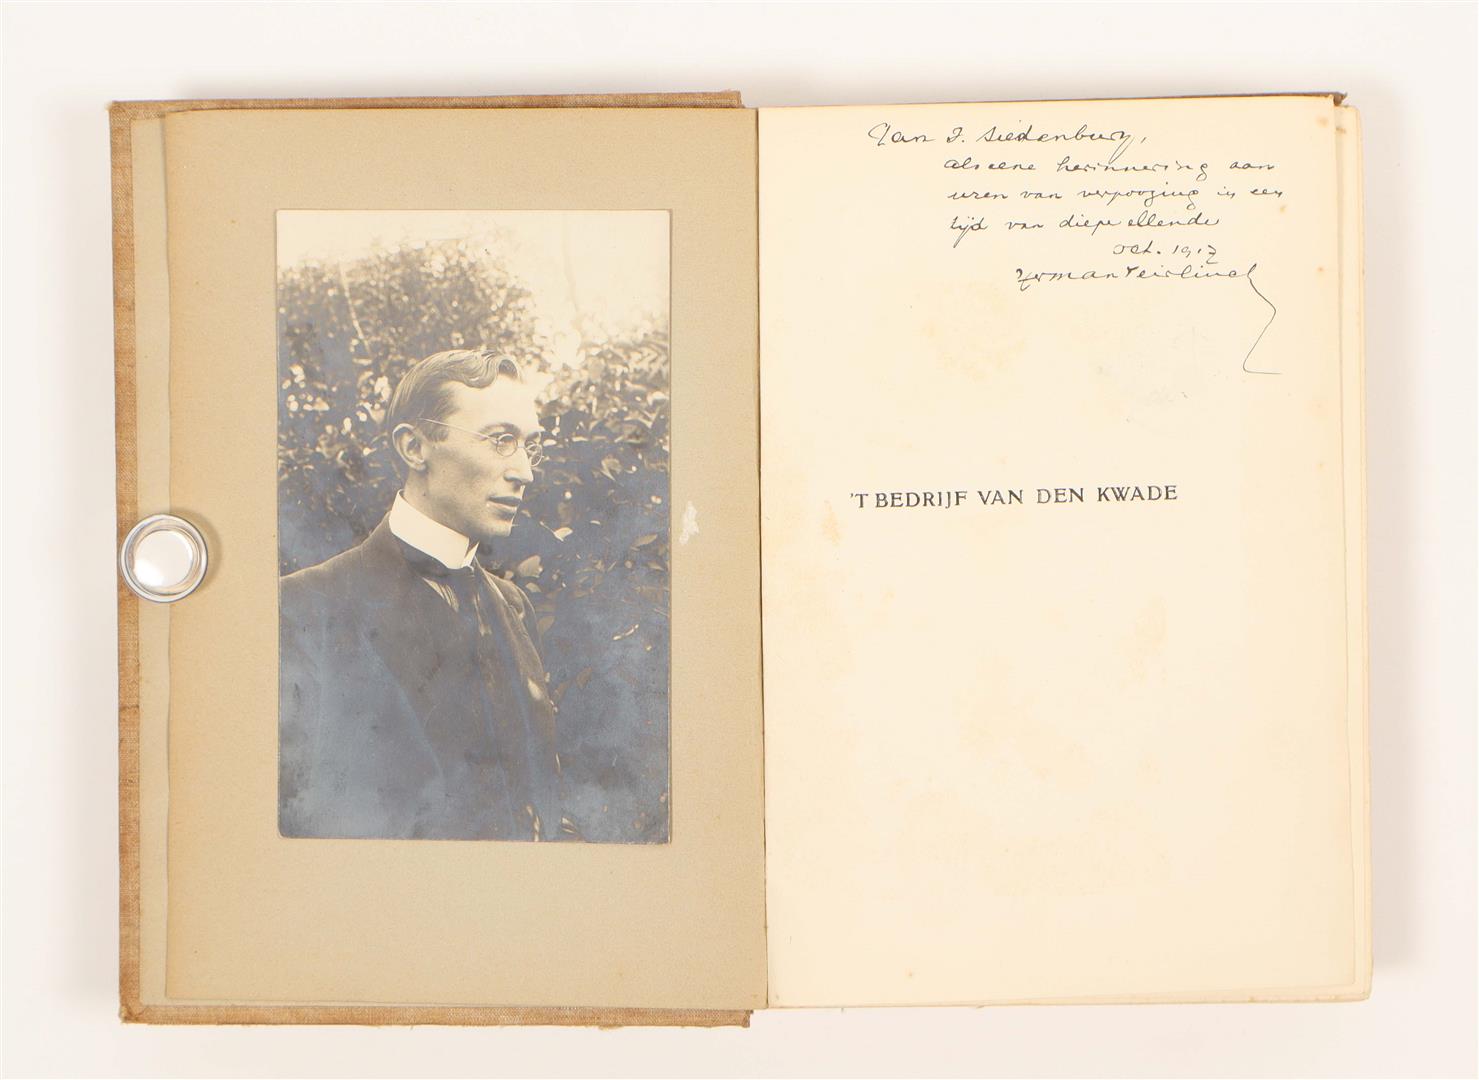 Aan J. Siedenburg,
als eene herinnering aan
uren van verpoozing in een
tijd van diepe ellende
Oct. 1917
Herman Teirlinck
'T BEDRIJF VAN DEN KWADE